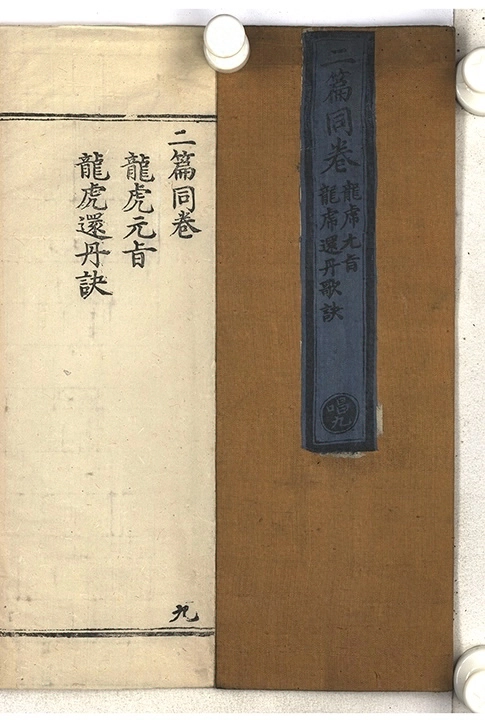 二篇同卷
龍虎元旨
龍虎還丹歌訣
唱九
二篇同卷
龍虎元旨
龍虎還丹訣
九